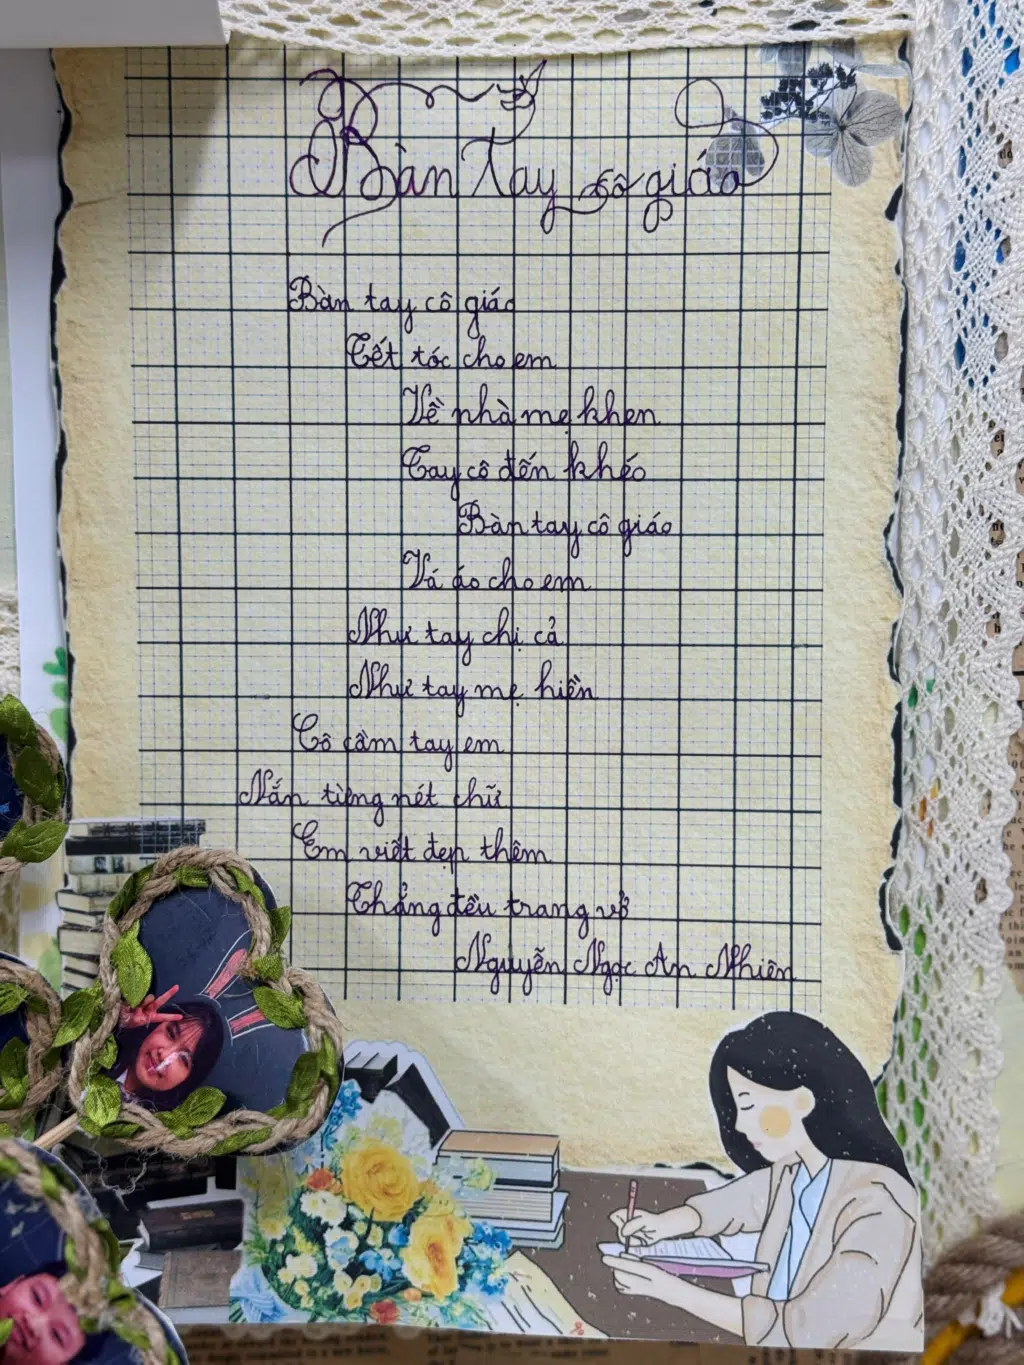 Bàn Tay cô giáo
Bàn tay cô giáo
Tết tóc cho em
Về nhà mẹ khen
Tay cô đến khéo
Bàn tay cô giáo
Vá áo cho em
Như tay chị cả
Như tay mẹ hiền
Cô cầm tay em
Nắn từng nét chữ
Em viết đẹp thêm
Thẳng đều trang vở
Nguyễn Ngọc An Nhiên